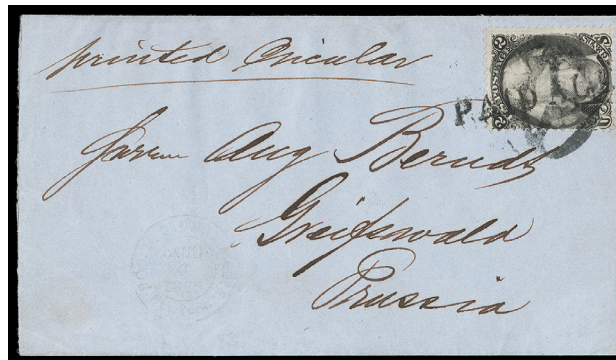 printed Circular
PAID ALL
Herrn Aug Berndt
Greifswald
Prussia